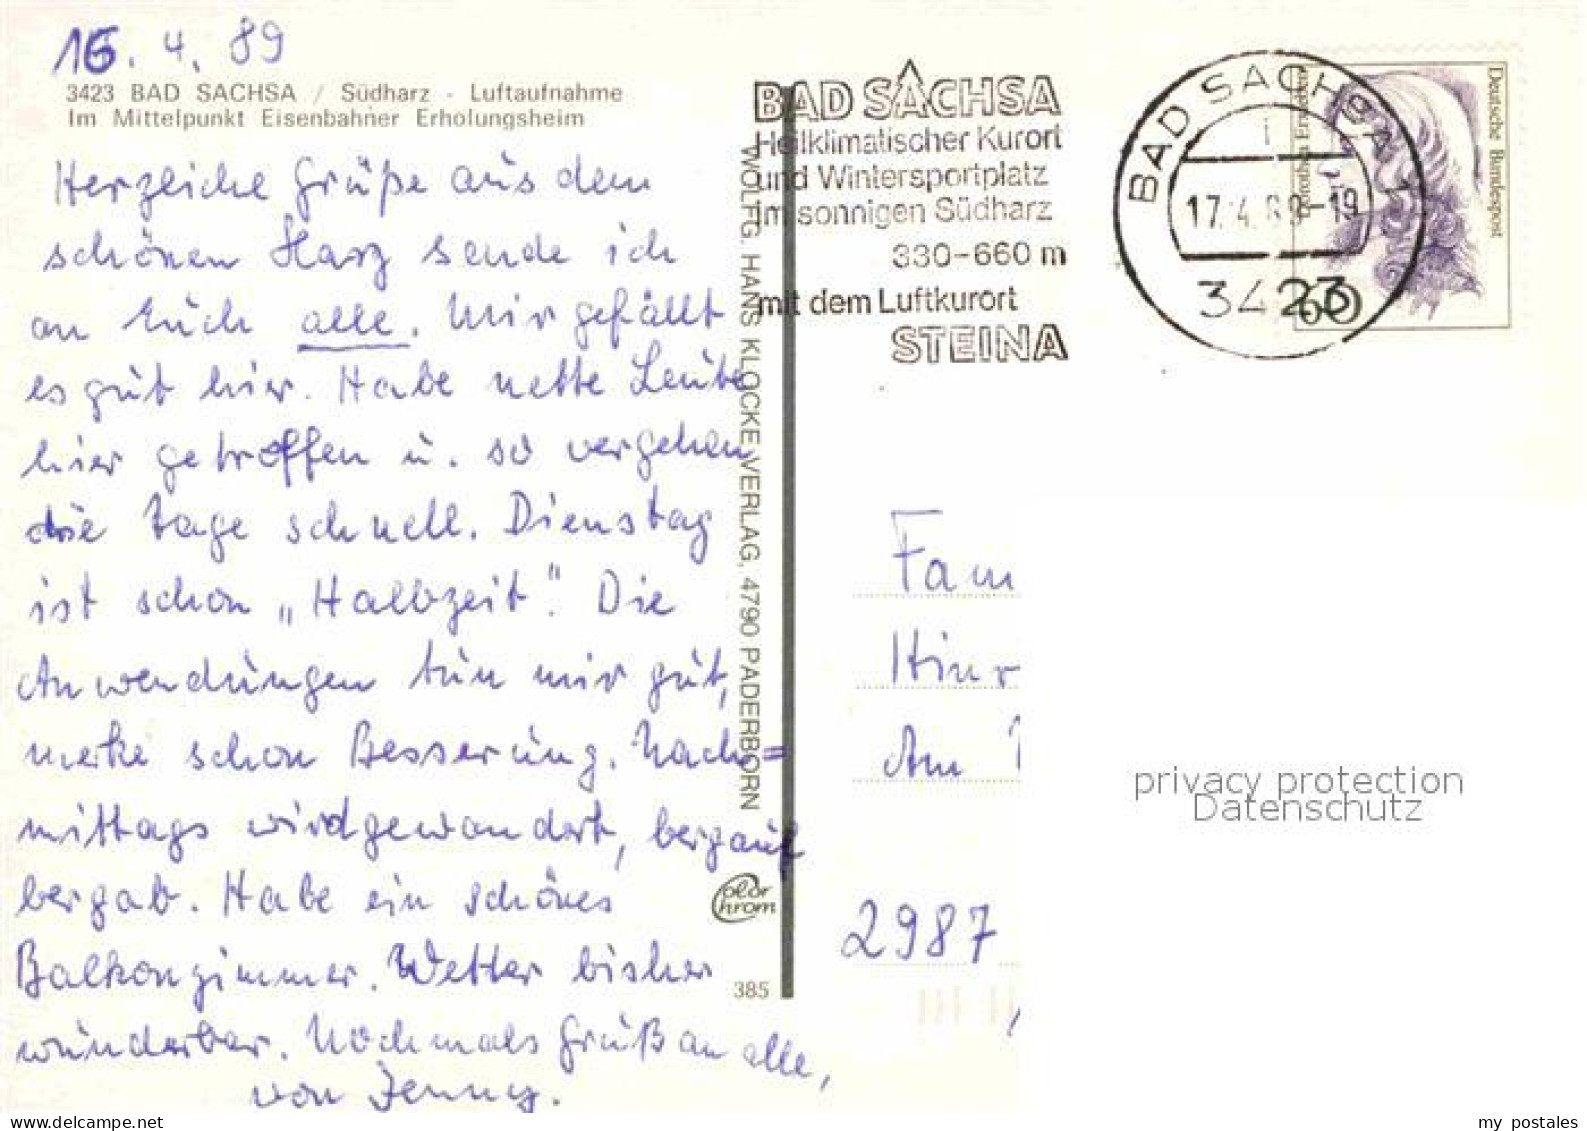 16. 4. 89
3423 BAD SACHSA / Südharz - Luftaufnahme
Im Mittelpunkt Eisenbahner Erholungsheim
Herzliche Grüße aus dem
schönen Harz sende ich
an Euch alle. Mir gefällt
es gut hier. Habe nette Leute
hier getroffen u. so vergehen
die Tage schnell. Dienstag
ist schon „Halbzeit". Die
Anwendungen tun mir gut,
merke schon Besserung. Nach=
mittags wird gewandert, bergauf
bergab. Habe ein schönes
Balkonzimmer. Wetter bisher
wunderbar. Nochmals Gruß an alle,
von Jenny.
WOLFG. HANS KLOCKE VERLAG, 4790 PADERBORN
Color
Chrom
385
BAD SACHSA
Heilklimatischer Kurort
und Wintersportplatz
im sonnigen Südharz
330-660 m
mit dem Luftkurort
STEINA
BAD SACHSA 1
17.4.89-19
3423
Deutsche Bundespost
Dorothea Erxleben
60
Fam
Hinr
Am
2987
privacy protection
Datenschutz
delcampe.net
my_postales